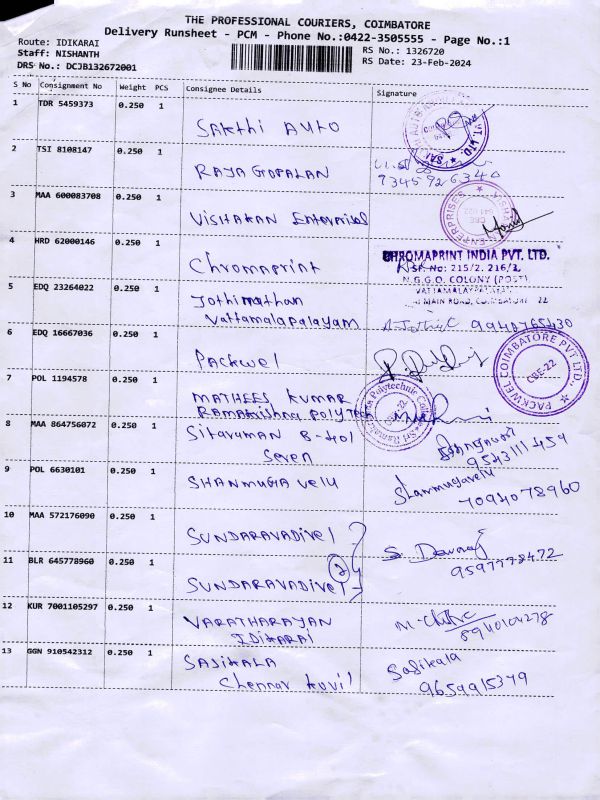 THE PROFESSIONAL COURIERS, COIMBATORE
Delivery Runsheet - PCM - Phone No.:0422-3505555 - Page No.:1
Route: IDIKARAI
Staff: NISHANTH
DRS No.: DCJB132672001
RS No.: 1326720
RS Date: 23-Feb-2024
S No Consignment No Weight PCS Consignee Details Signature
1 TDR 5459373 0.250 1
SAkthi AUTO
2 TSI 8108147 0.250 1
RAJA GOPALAN
9345926340
3 MAA 600083708 0.250 1
VISHAKAN Enterprises
ENTERPRISES
4 HRD 62000146 0.250 1
Chromaprint
CHROMAPRINT INDIA PVT. LTD.
SF.No: 215/2. 216/3,
N.G.G.O. COLONY (POST)
MAIN ROAD, COIMBATORE 22
5 EDQ 23264022 0.250 1
Jothimathan
Vattamalapalayam
9940765430
6 EDQ 16667036 0.250 1
Packwel
PACKWEL COIMBATORE PVT LTD.,
CBE-22
7 POL 1194578 0.250 1
MATHEES KUMAR
Ramakrishna Polytech
8 MAA 864756072 0.250 1
Sitaraman B-401
Seven
9543111459
9 POL 6630101 0.250 1
SHANMUGA velu
Shanmugavelu
7094078960
10 MAA 572176090 0.250 1
SUNDARAVADIVEL
2
11 BLR 645778960 0.250 1
SUNDARAVADIVEL
S. Devaraj
9597778472
12 KUR 7001105297 0.250 1
VARATHARAYAN
IDIKARAI
8940104278
13 GGN 910542312 0.250 1
SASIKALA
Chennai kovil
Sasikala
9659915379